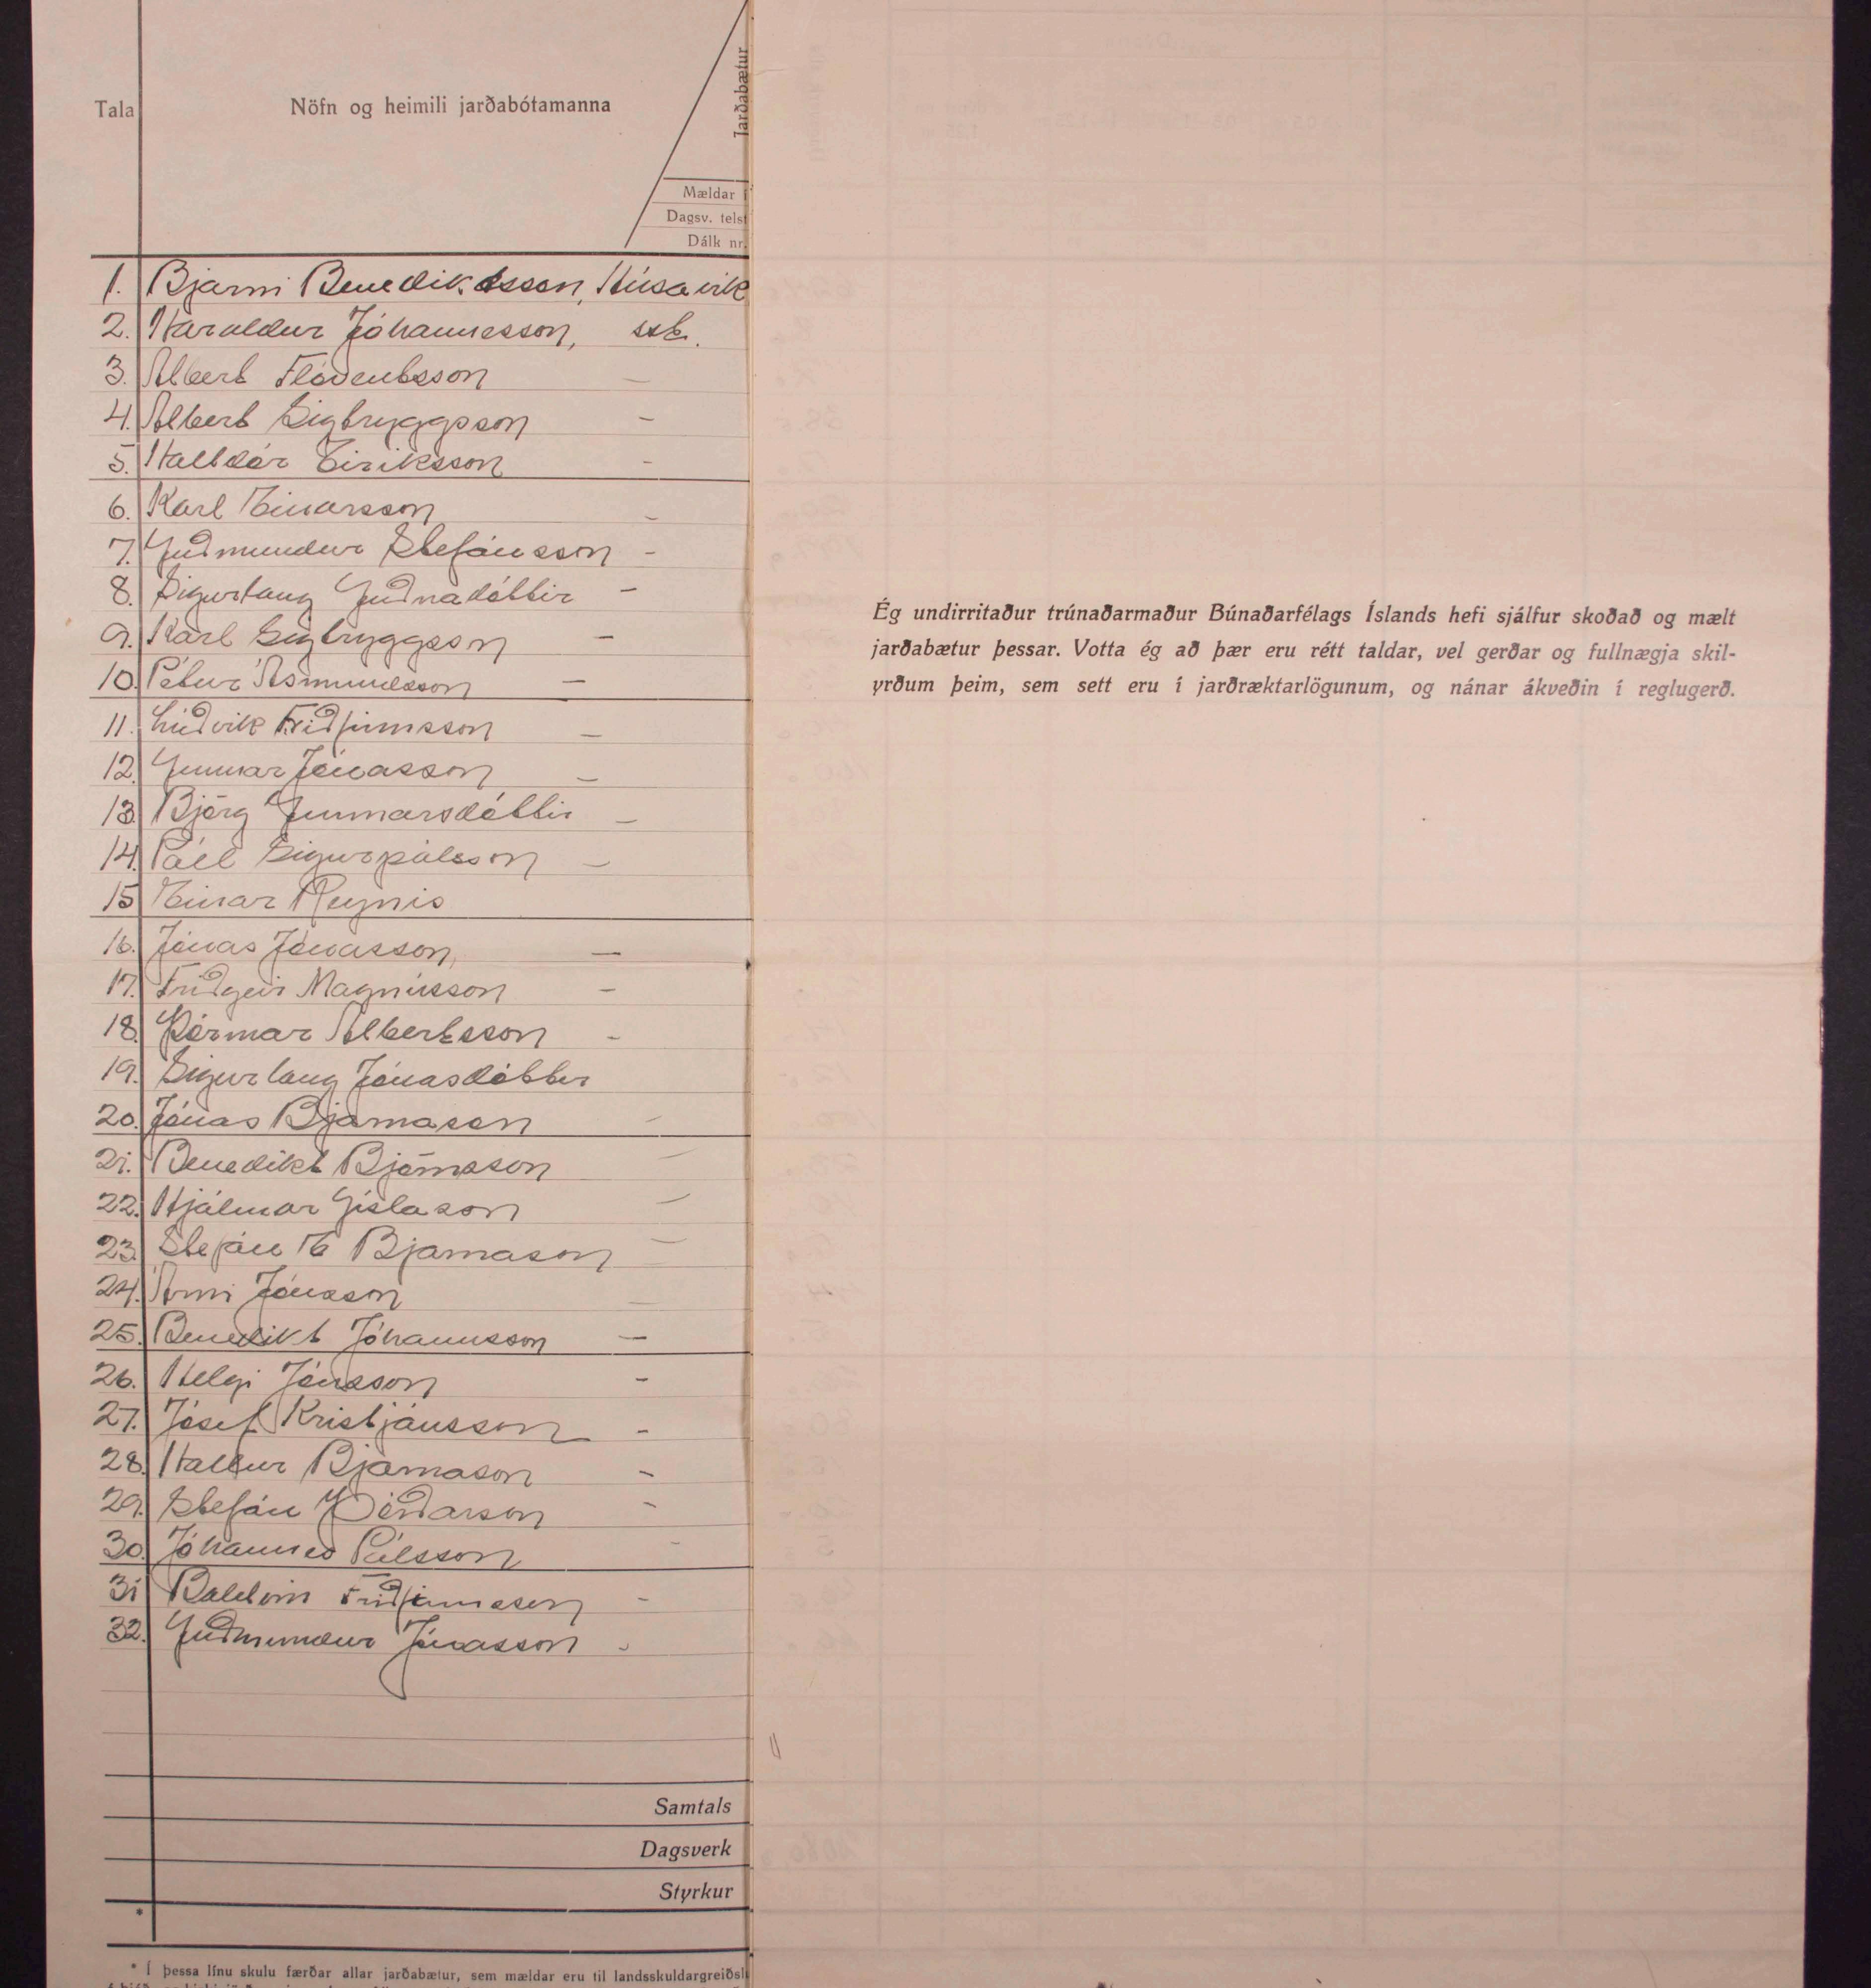 Tala
Nöfn og heimili jarðabótamanna
Jarðabætur
Mældar í
Dagsv. telst
Dálk nr.
1. Bjarni Benediktsson, Húsavík
2. Haraldur Jóhannesson, sst.
3. Albert Flóventsson —
4. Albert Sigtryggsson —
5. Halldór Eiríksson —
6. Karl Einarsson —
7. Guðmundur Stefánsson —
8. Sigurlaug Guðnadóttir —
9. Karl Sigtryggsson —
10. Pétur Ásmundsson —
11. Lúðvík Friðfinnsson —
12. Gunnar Jónasson —
13. Björg Gunnarsdóttir —
14. Páll Sigurpálsson —
15 Einar Reynis
16. Jónas Jónasson, —
17. Friðgeir Magnússon —
18. Þórmar Albertsson —
19. Sigurlaug Jónasdóttir
20. Jónas Bjarnason —
21. Benedikt Björnsson —
22. Hjálmar Gíslason —
23. Stefán E Bjarnason —
24. Árni Jónsson —
25. Benedikt Jóhannsson —
26. Helgi Jónsson —
27. Jósef Kristjánsson —
28. Hallur Bjarnason —
29. Stefán Þórðarson —
30. Jóhannes Pálsson —
31 Baldvin Friðfinnsson —
32. Guðmundur Jónasson -
Samtals
Dagsverk
Styrkur
*
* Í þessa línu skulu færðar allar jarðabætur, sem mældar eru til landsskuldargreiðsl
Ég undirritaður trúnaðarmaður Búnaðarfélags Íslands hefi sjálfur skoðað og mælt
jarðabætur þessar. Votta ég að þær eru rétt taldar, vel gerðar og fullnægja skil-
yrðum þeim, sem sett eru í jarðræktarlögunum, og nánar ákveðin í reglugerð.